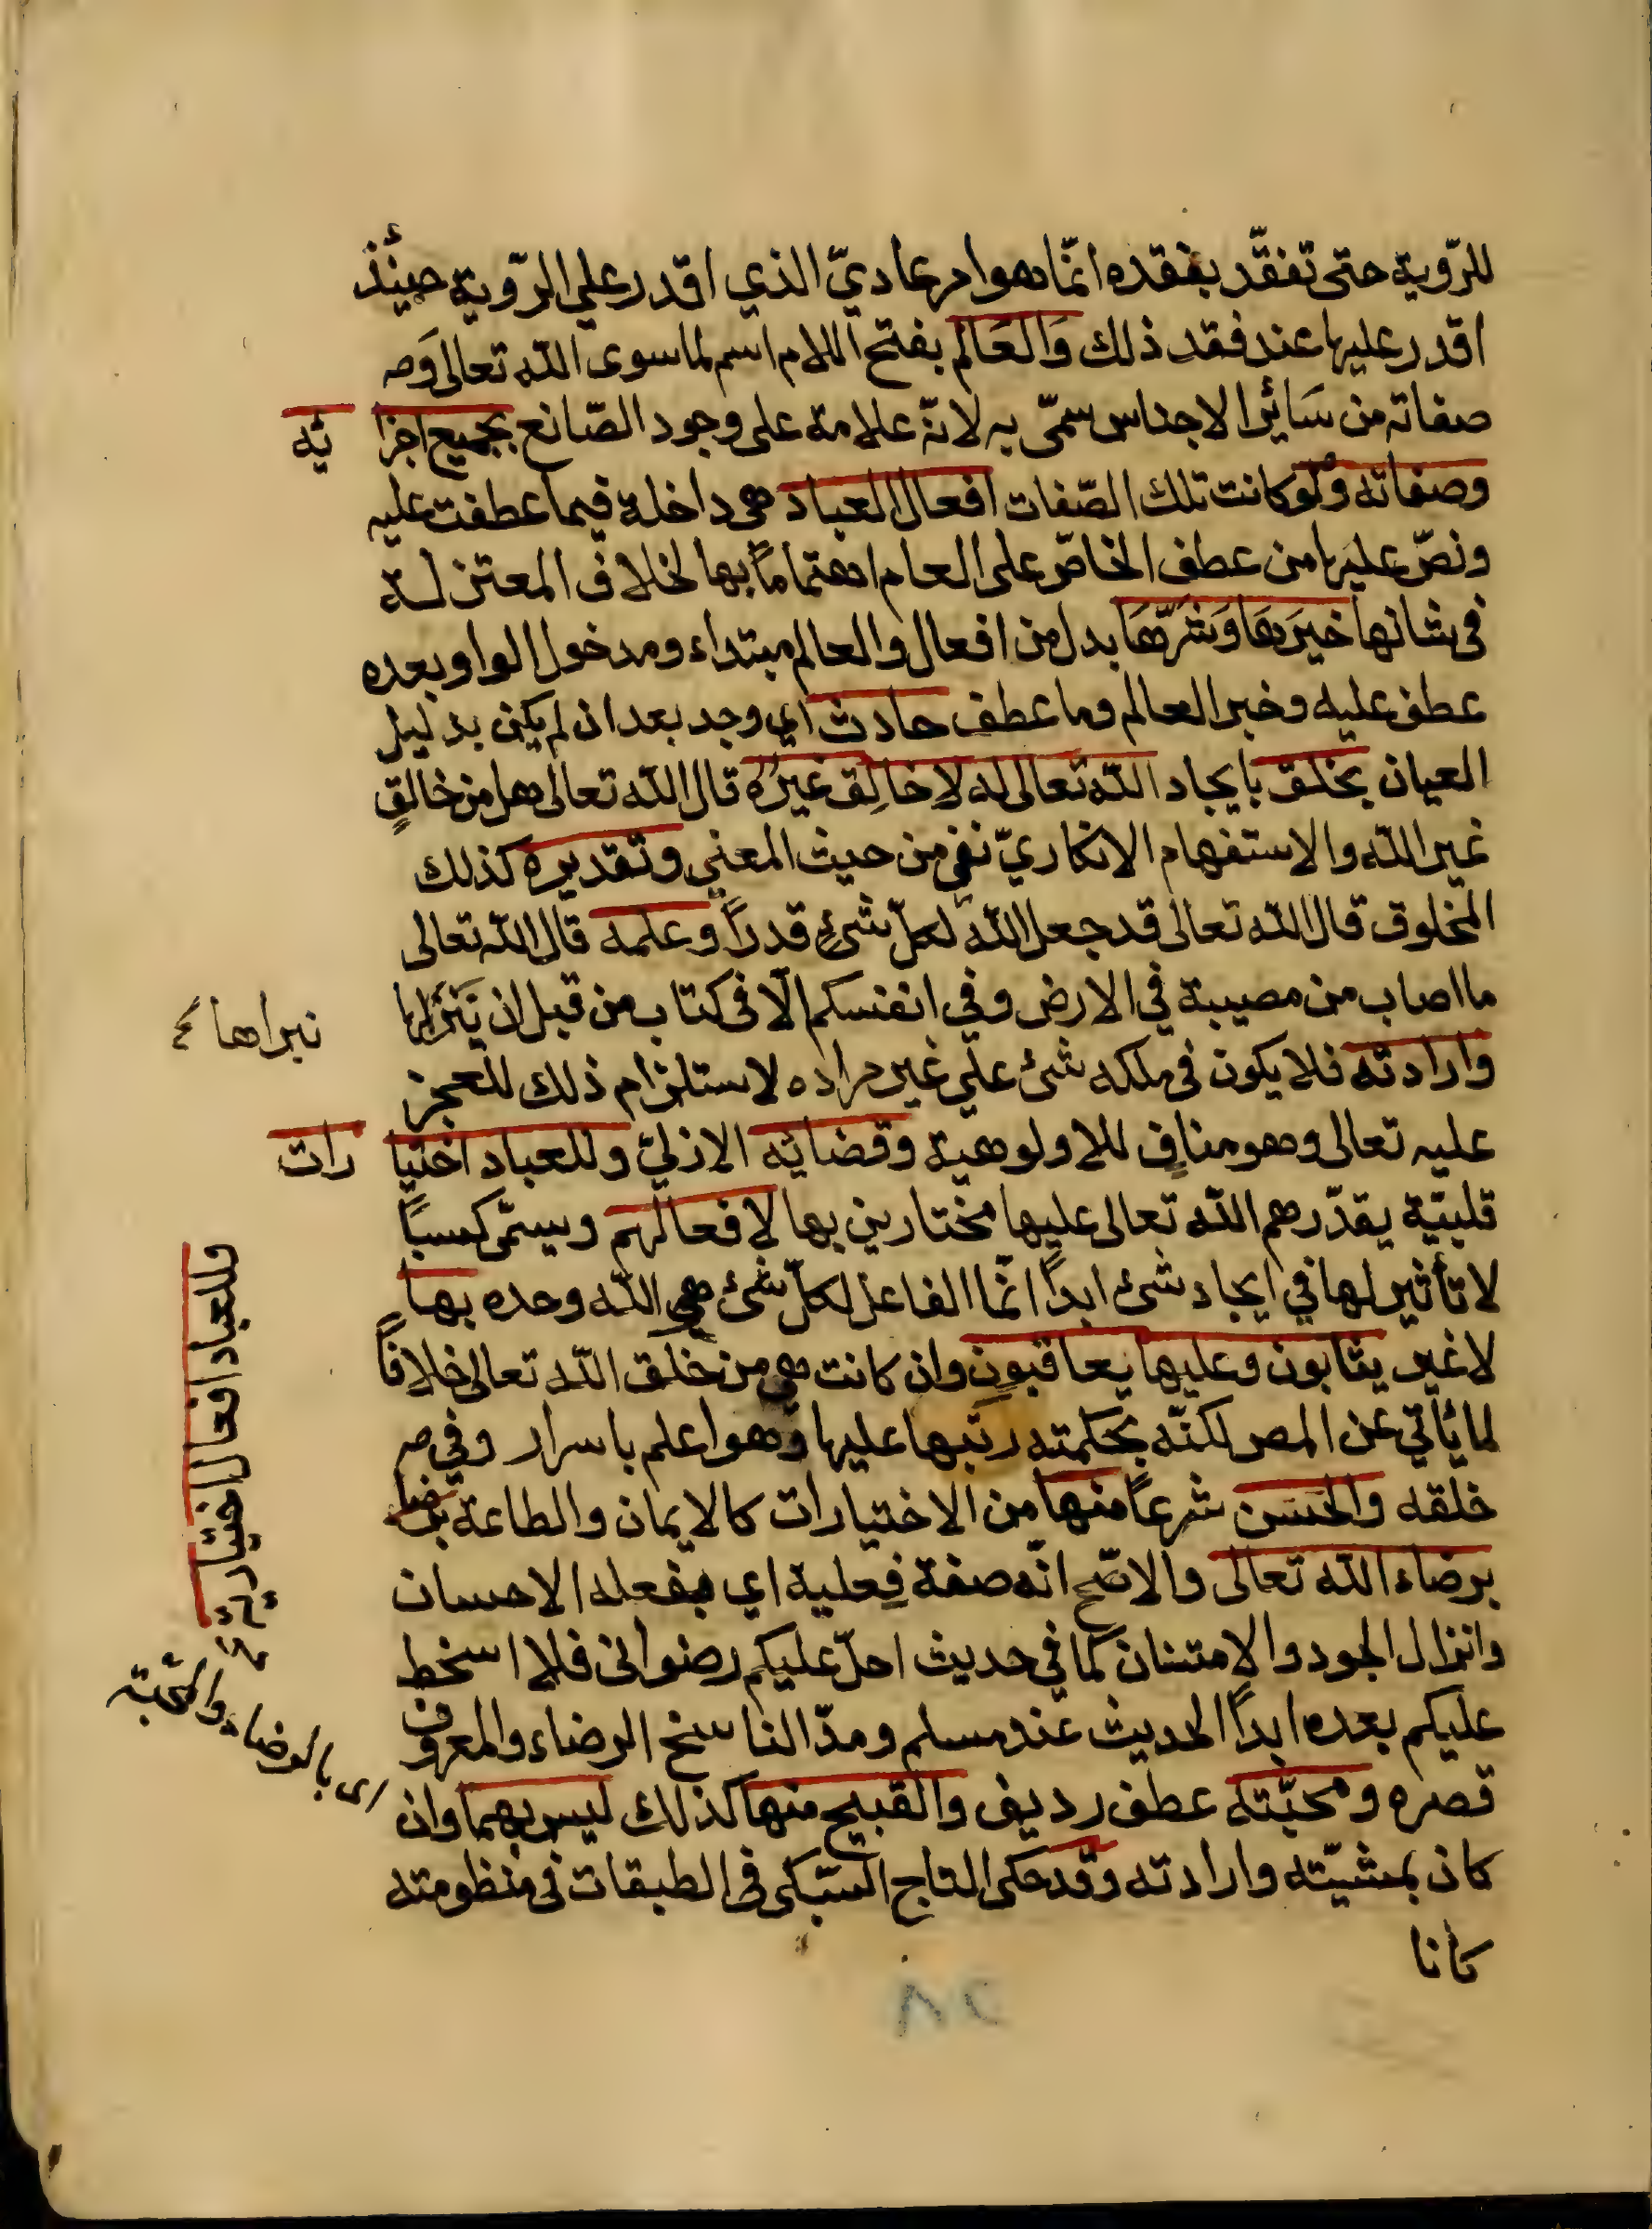 للرّوية حتى تفقّد بفقده انّما هو امر عاديّ الذي اقدر على الرّوية حينئذ
اقدر عليها عند فقد ذلك وَالعَالم بفتح اللام اسم لما سوى الله تعالى وَ
صفاته من سَائر الاجناس سمّى به لانّه علامة على وجود الصّانع بجميع اجزا ئه
وصفاته ولو كانت تلك الصّفات افعال العباد هي داخلة فيما عطفت عليه
ونصّ عليها من عطف الخاصّ على العام اهتماماً بها لخلاف المعتزلة
فى شانها خيرَهَا وَشَرّهَا بدل من افعال والعالم مبتداء ومدخول الواو بعده
عطف عليه وخبر العالم وما عطف حادث اي وجد بعد ان لم يكن بدليل
العيان بخلق بايجاد الله تعالى له لا خالِق غيرُه قال الله تعالى هل من خالقٍ
غير الله والاستفهام الانكاريّ نفي من حيث المعني وتقديره كذلك
المخلوق قال الله تعالى قد جعل الله لكلّ شئٍ قدراً وعلمه قال الله تعالى
ما اصاب من مصيبة في الارض وفي انفسكم الّا فى كتاب من قبل ان
نبراها
وارادته فلا يكون فى ملكه شئ على غير مراده لاستلزام ذلك للعجز
عليه تعالى وهو منافٍ للاولوهية وقضائه الازليّ وللعباد اختيا رات
قلبيّة يقدّرهم الله تعالى عليها مختارين بها لافعالهم ويسمّى كسباً
لا تأثير لها في ايجاد شئ ابداً انّما الفاعل لكلّ شئ هي الله وحده بها
لا غير يثابون وعليها يعاقبون وان كانت هي من خلق الله تعالى خلافاً
لما يأتي عن المص لكنّه بحكمته رتبها عليها وهو اعلم باسرار وفي
خلقه والحَسَن شرعاً منها من الاختيارات كالايمان والطاعة
برضاء الله تعالى والاصّح انّه صفة فِعلية اي بفعله الاحسان
وانزال الجود والامتنان كما في حديث احلّ عليكم رضوانى فلا اسخط
عليكم بعده ابداً الحديث عند مسلم ومدّ الناسخ الرضاء والمعروف
قصره ومحبّته عطف رديف والقبيح منها كذلك ليس بهما وان
كان بمشيّته وارادته وقد حكى التاج السّبكى فى الطبقات فى منظومته
كانا
وللعباد افعال اختياريّة
اى بالرضاء والمحّبة
٨٢